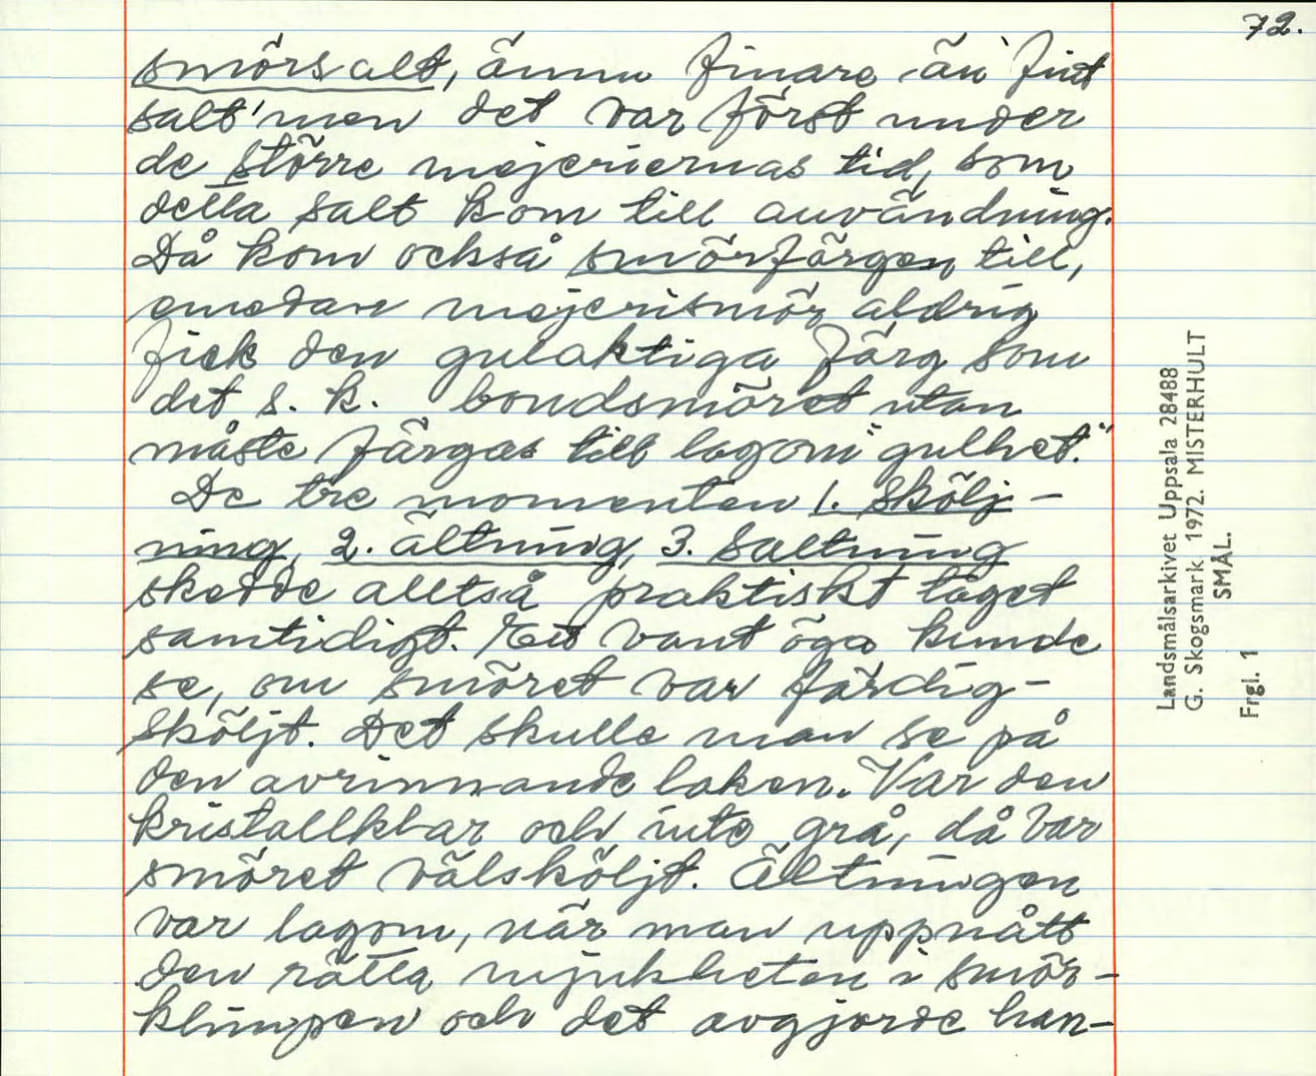 72.
smörsalt, ännu finare än 'fint
salt' men det var först under
de större mejeriernas tid, som
detta salt kom till användning.
Då kom också smörfärgen till,
emedan mejerismör aldrig
fick den gulaktiga färg som
det s.k. bondsmöret utan
måste färgas till lagom "gulhet."
De tre momenten 1. Skölj-
ning, 2. ältning, 3. Saltning
skedde alltså praktiskt taget
samtidigt. Ett vant öga kunde
se, om smöret var färdig-
sköljt. Det skulle man se på
den avrinnande laken. Var den
kristallklar och inte grå, då var
smöret välsköljt. Ältningen
var lagom, när man uppnått
den rätta mjukheten i smör-
klimpen och det avgjorde han-
Landsmålsarkivet Uppsala 28488
G. Skogsmark 1972. MISTERHULT
SMÅL.
Frgl. 1